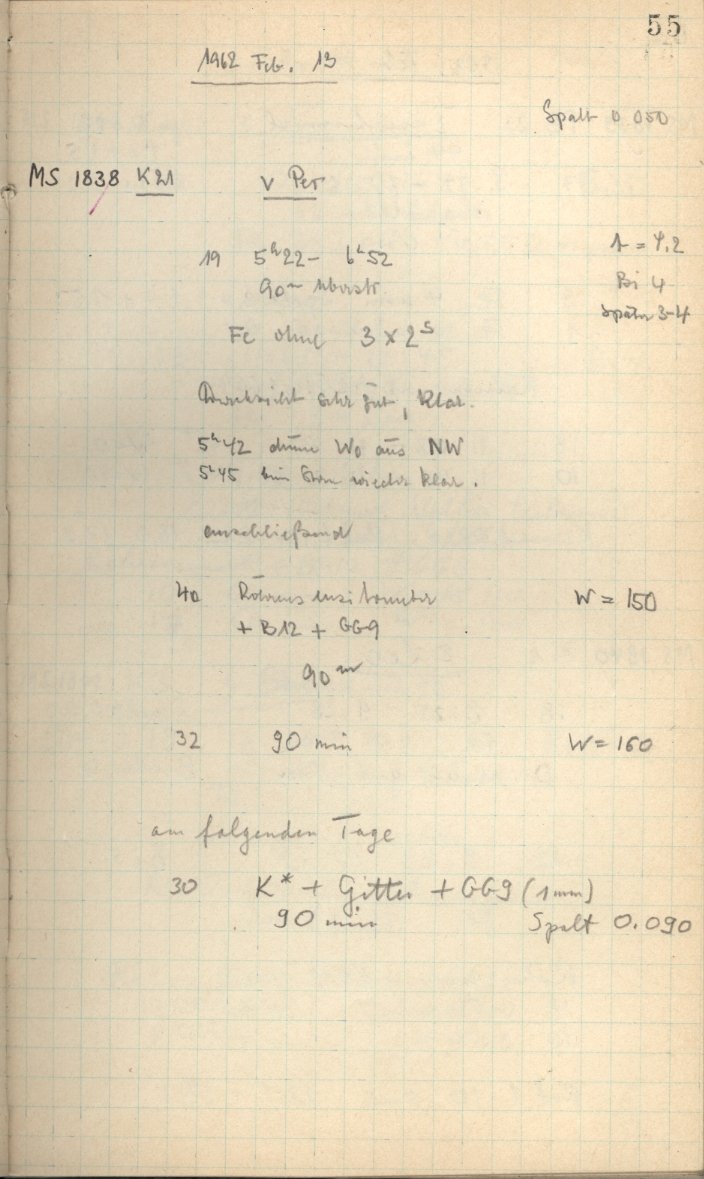 55
1962 Feb. 13
Spalt 0.050
MS 1838 K21 ν Per
19 5h22 - 6h52 t = 4.2
90m überstr Bi 4
später 3-4
Fe ohne 3 x 2s
Durchsicht sehr gut, klar.
5h42 dünne Wo aus NW
5h45 beim Stern wieder klar.
anschließend
40 Röhrensensitometer W = 150
+ B12 + GG9
90m
32 90 min W = 160
am folgenden Tage
30 K* + Gitter + GG9 (1mm)
90 min Spalt 0.090